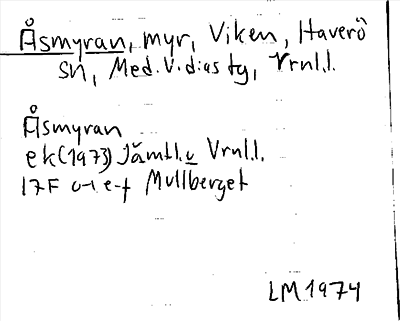 Åsmyran, myr, Viken, Haverö
sn, Med.v.dias tg, Vrnl.l.
Åsmyran
ek(1973) Jämtl.u Vrnl.l.
17F e-f Mullberget
LM 1974